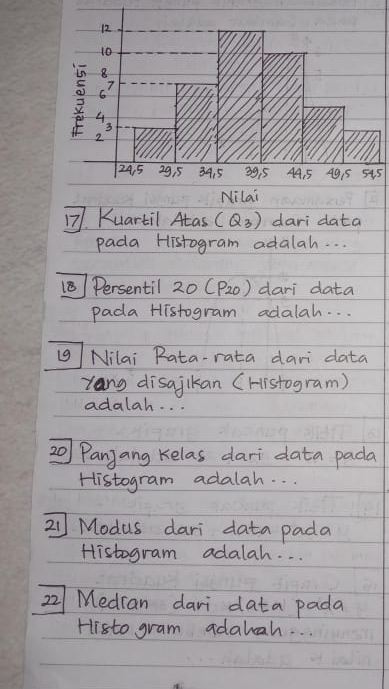 12
10
8
7
6
4
3
2
Frekuensi
24,5 29,5 34,5 39,5 44,5 49,5 54,5
Nilai
17 Kuartil Atas (Q3) dari data
pada Histogram adalah...
18 Persentil 20 (P20) dari data
pada Histogram adalah...
19 Nilai Rata-rata dari data
Yang disajikan (Histogram)
adalah...
20 Panjang Kelas dari data pada
Histogram adalah...
21 Modus dari data pada
Histogram adalah...
22 Median dari data pada
Histo gram adalah...